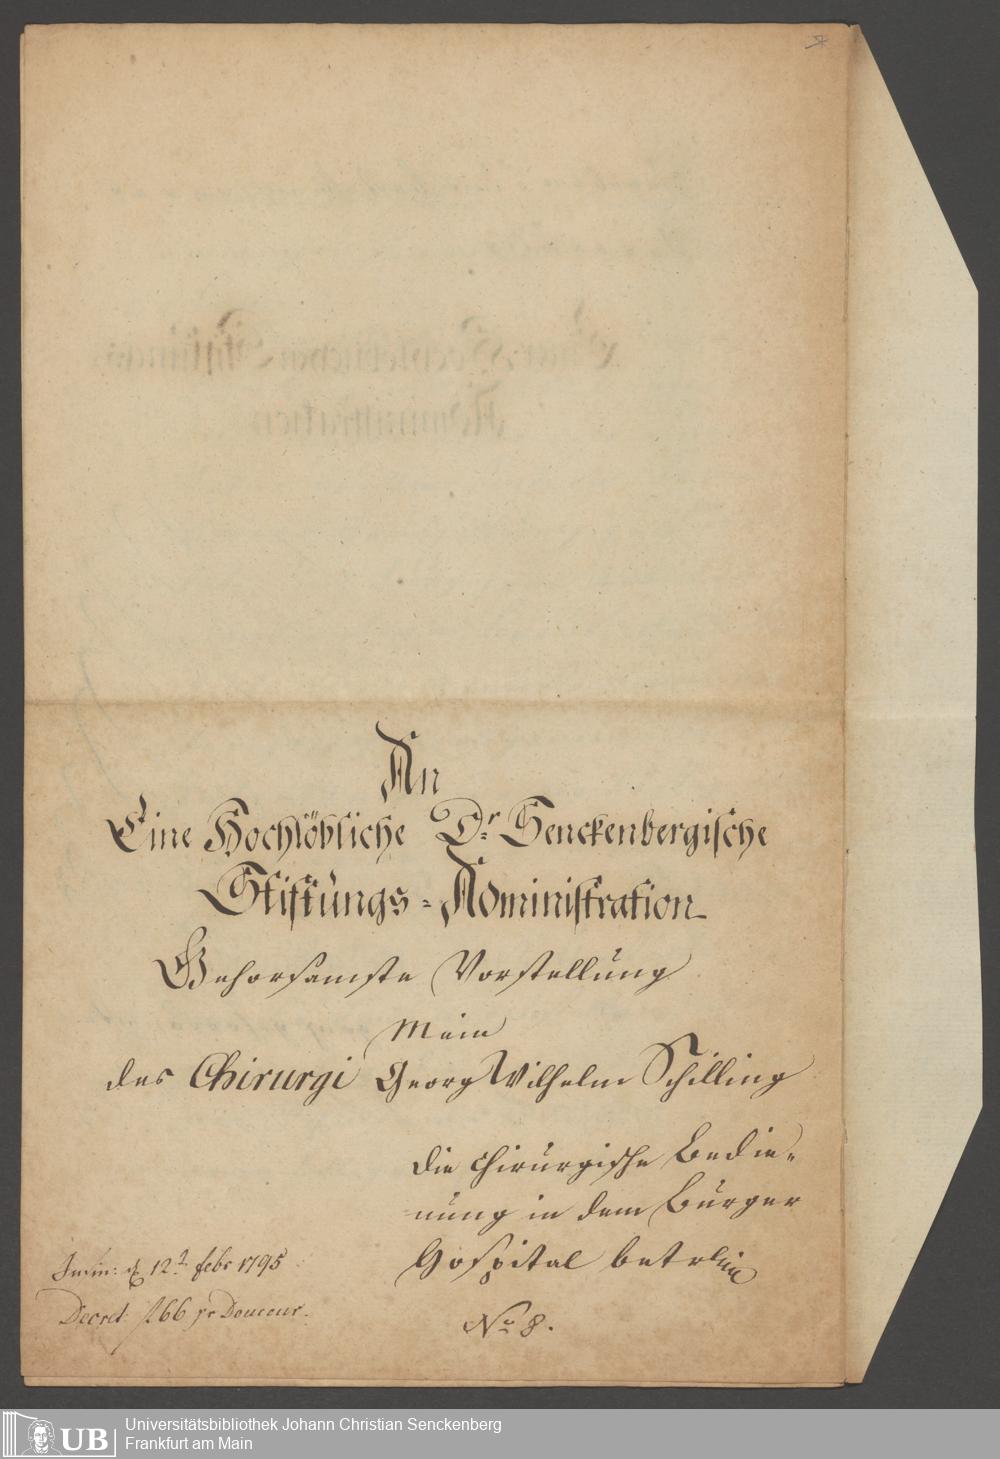 An
Eine Hochlöbliche Dr. Senckenbergische
Stiftungs-Administration
Gehorsamste Vorstellung
Mein
des Chirurgi Georg Wilhelm Schilling
die chirurgische Bedie-
nung in dem Burger
Hospital betr.
No 8.
12t febr 1795
Decret f 66 pr Douceur.
UB
Universitätsbibliothek Johann Christian Senckenberg
Frankfurt am Main